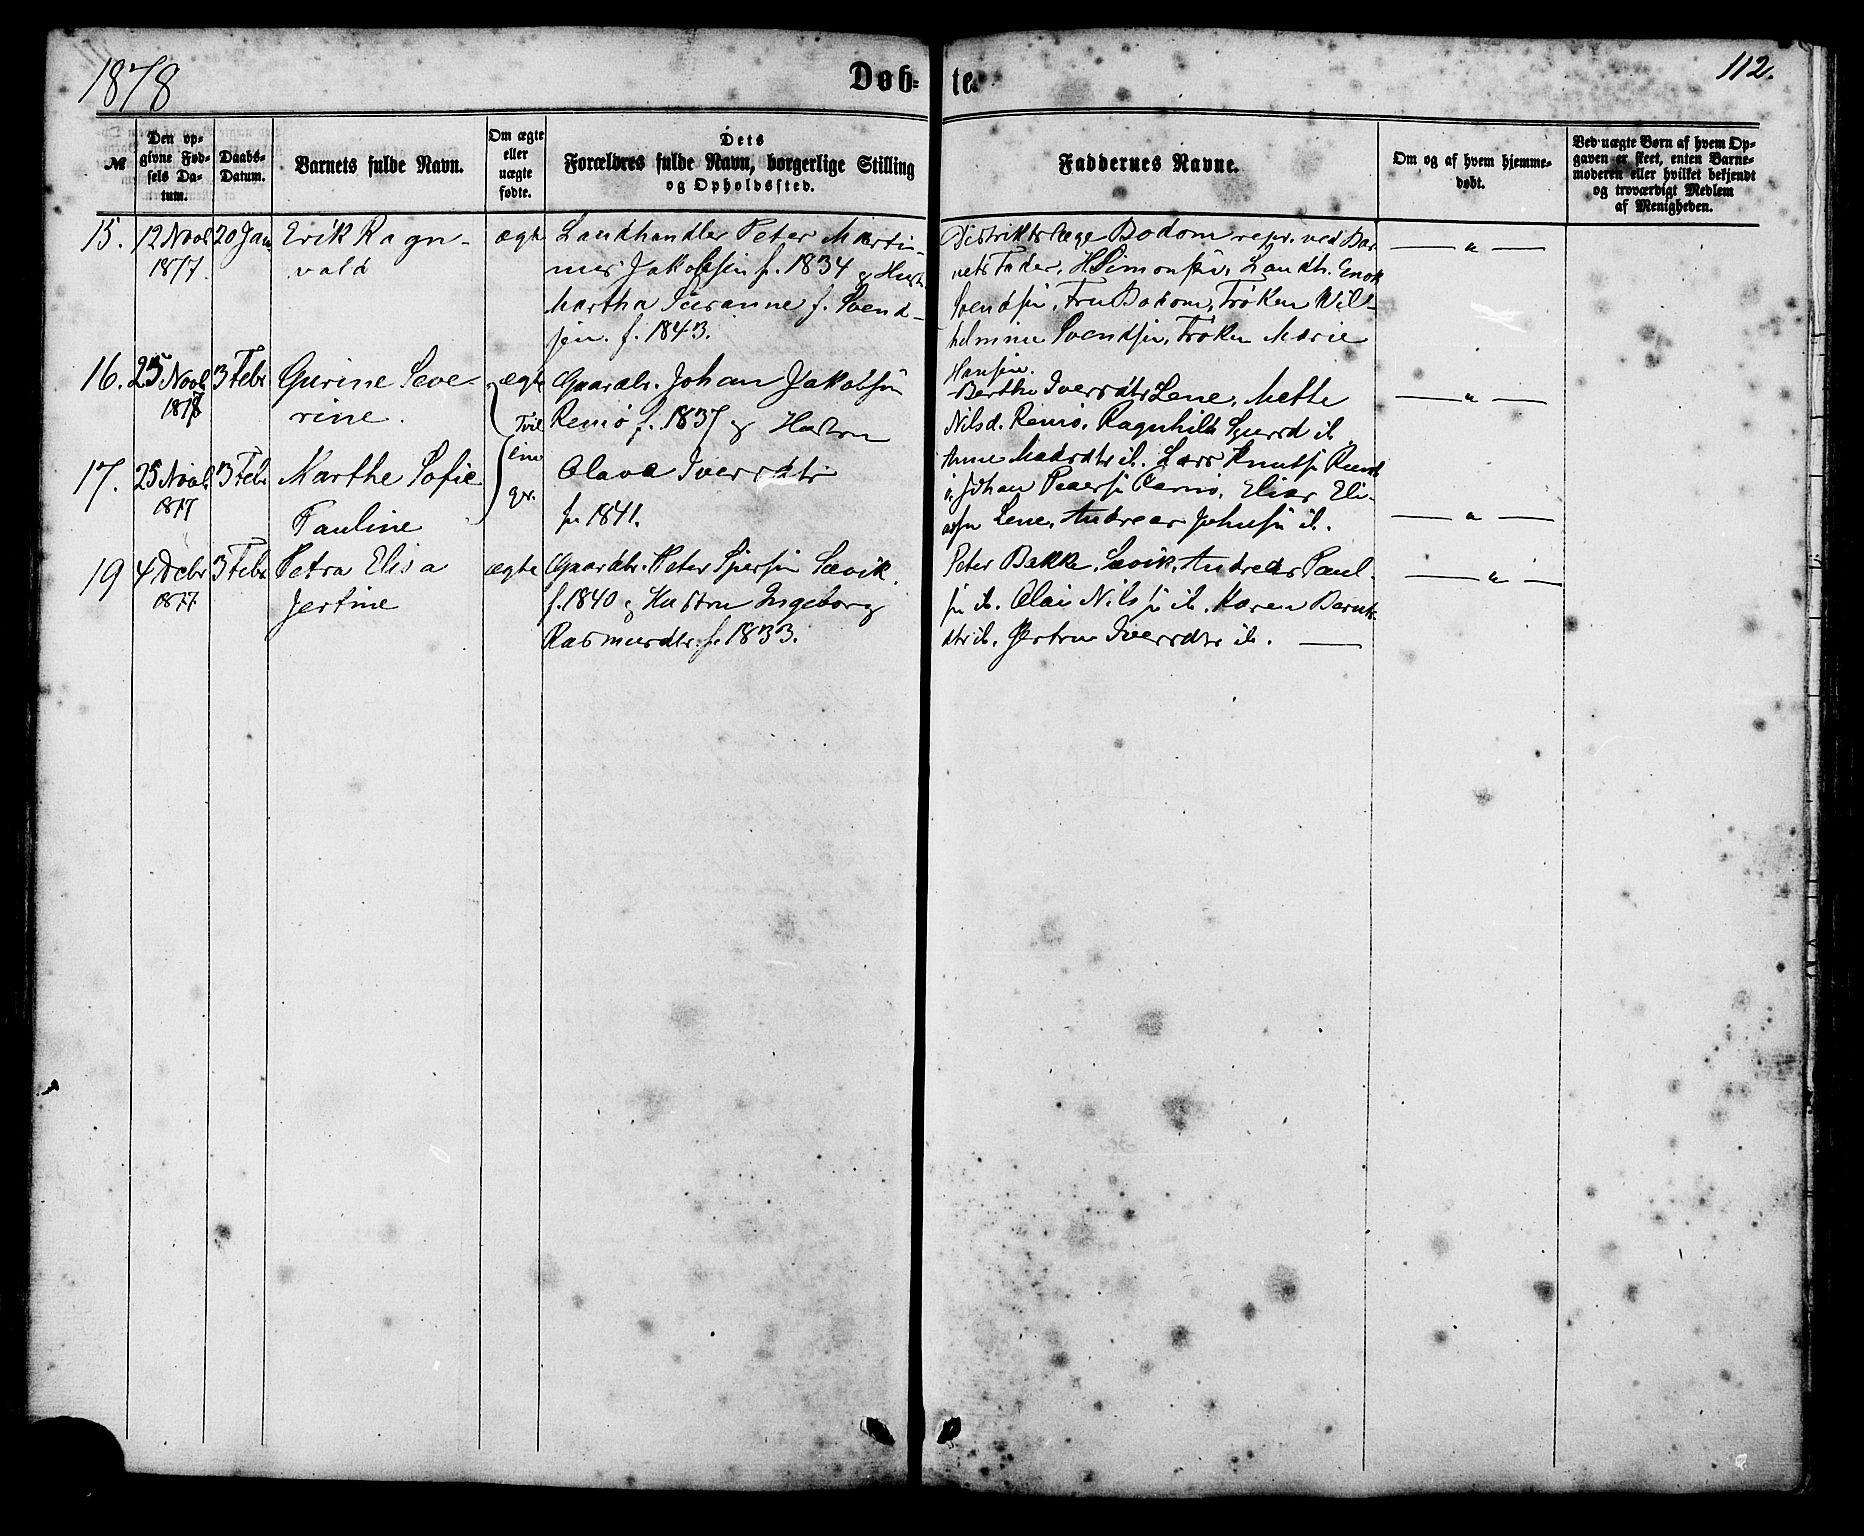 1878
Døb-
te.
112.
№
Den op-
givne Fød-
sels Da-
tum.
Daabs-
Datum.
Barnets fulde Navn.
Om ægte
eller
uægte
fødte.
Dets
Forældres fulde Navn, borgerlige Stilling
og Opholdssted.
Faddernes Navne.
Om og af hvem hjemme-
døbt.
Ved uægte Børn af hvem Op-
gaven er skeet, enten Barne-
moderen eller hvilket bekjendt
og troværdigt Medlem
af Menigheden.
15.
12 Novb
1877.
20 Jan
Erik Ragn-
vald
ægte
Landhandler Peter Marti
nus Jakobsen f. 1834 & Hustr.
Martha Susanne f. Svend-
sen. f. 1843.
Distriktslæge Bodom repr. ved Bar
nets Fader, H. Simonsen, Landh. Enok
Svendsen, Fru Bodom, Frøken Wil-
helmine Svendsen, Frøken Marie
Hansen.
— " —
16.
25 Novb
1877
3 Febr
Gurine Seve-
rine.
ægte
Tvil
Gaardbr. Johan Jakobsen
Remø f. 1837 & Hustru
Berthe Iversdtr Lene, Mette
Nilsd. Remø, Ragnhild Sjursd ib.
— " —
17.
25 Novb
1877
3 Febr
Marthe Sofie
Pauline
Olava Iversdtr
f. 1841.
Anne Madsdtr ib. Lars Knutsen
Johan Pedersen Remø, Elias Eli-
assen Lene, Andreas Johnsen ib.
— " —
19
4 Decbr
1877.
3 Febr
Petra Elisa
Jertine
ægte
Gaardbr. Peter Sjursen Sævik.
f. 1840 & Hustru Ingeborg
Rasmusdtr. f. 1833.
Peter Bakke, Sævik, Andreas Paul-
sen ib. Olai Nilsen ib. Karen Bernts
dtr ib. Jertru Iversdtr ib. —
— " —